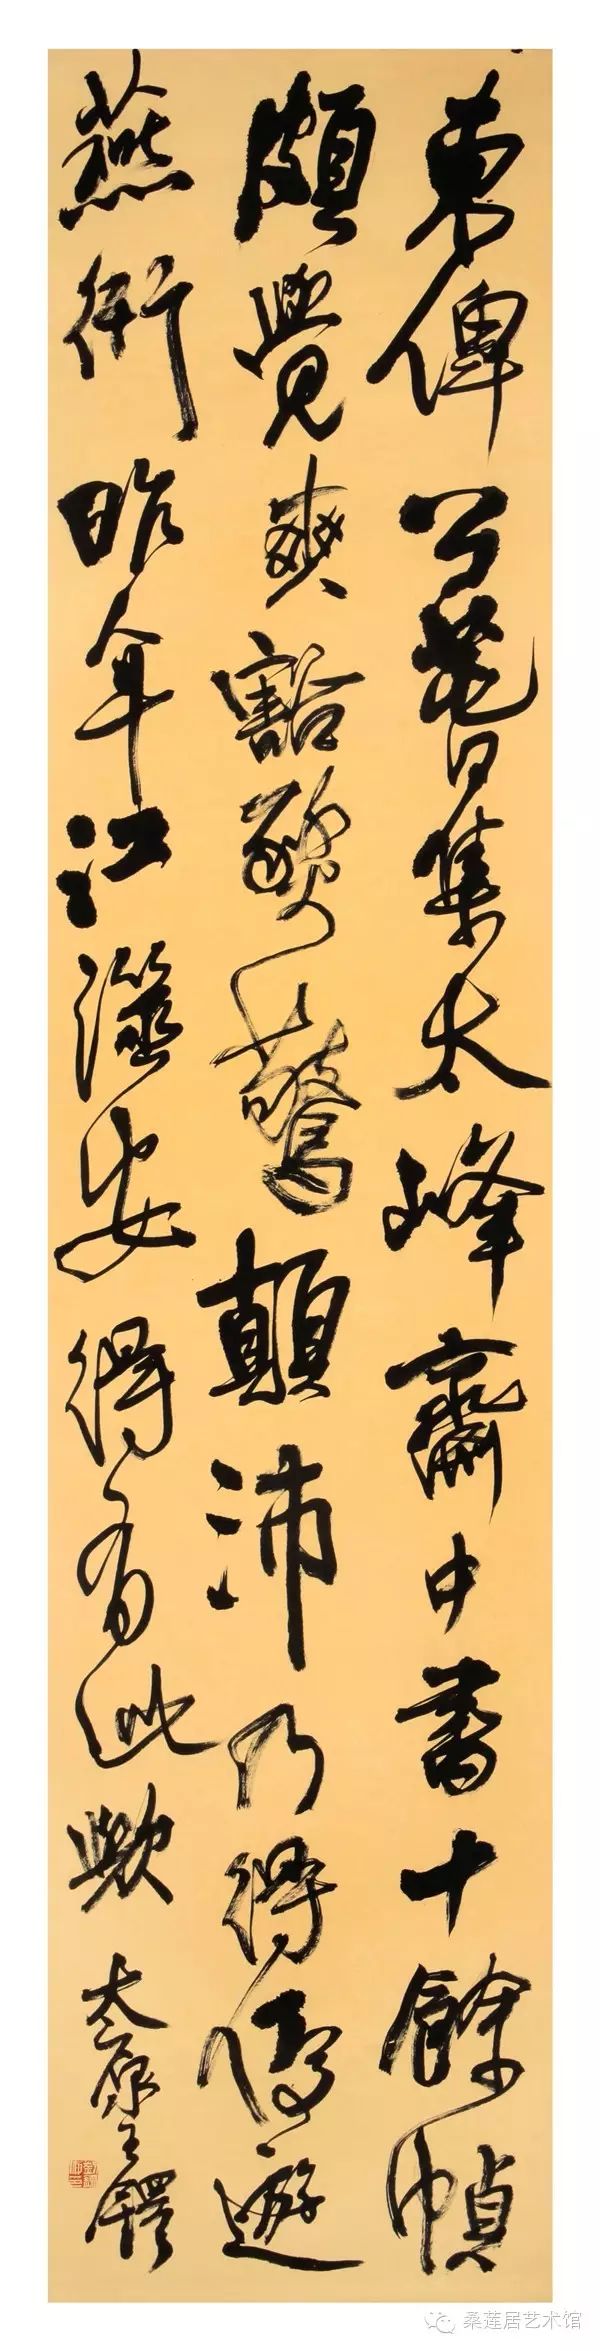 東傅公日集太峰齋中書十餘幀
頗覺爽豁驚顛沛乃得優遊
燕衎昨年江澨安得有此歟
太原王鐸
桑莲居艺术馆